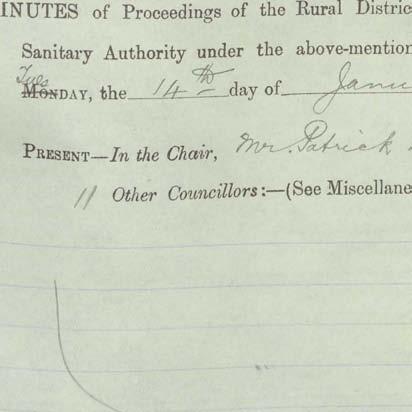 INUTES of Proceedings of the Rural Distric
Sanitary Authority under the above-mention
Tues
MONDAY, the 14th day of Janu
PRESENT—In the Chair, Mr. Patrick
11 Other Councillors:—(See Miscellane